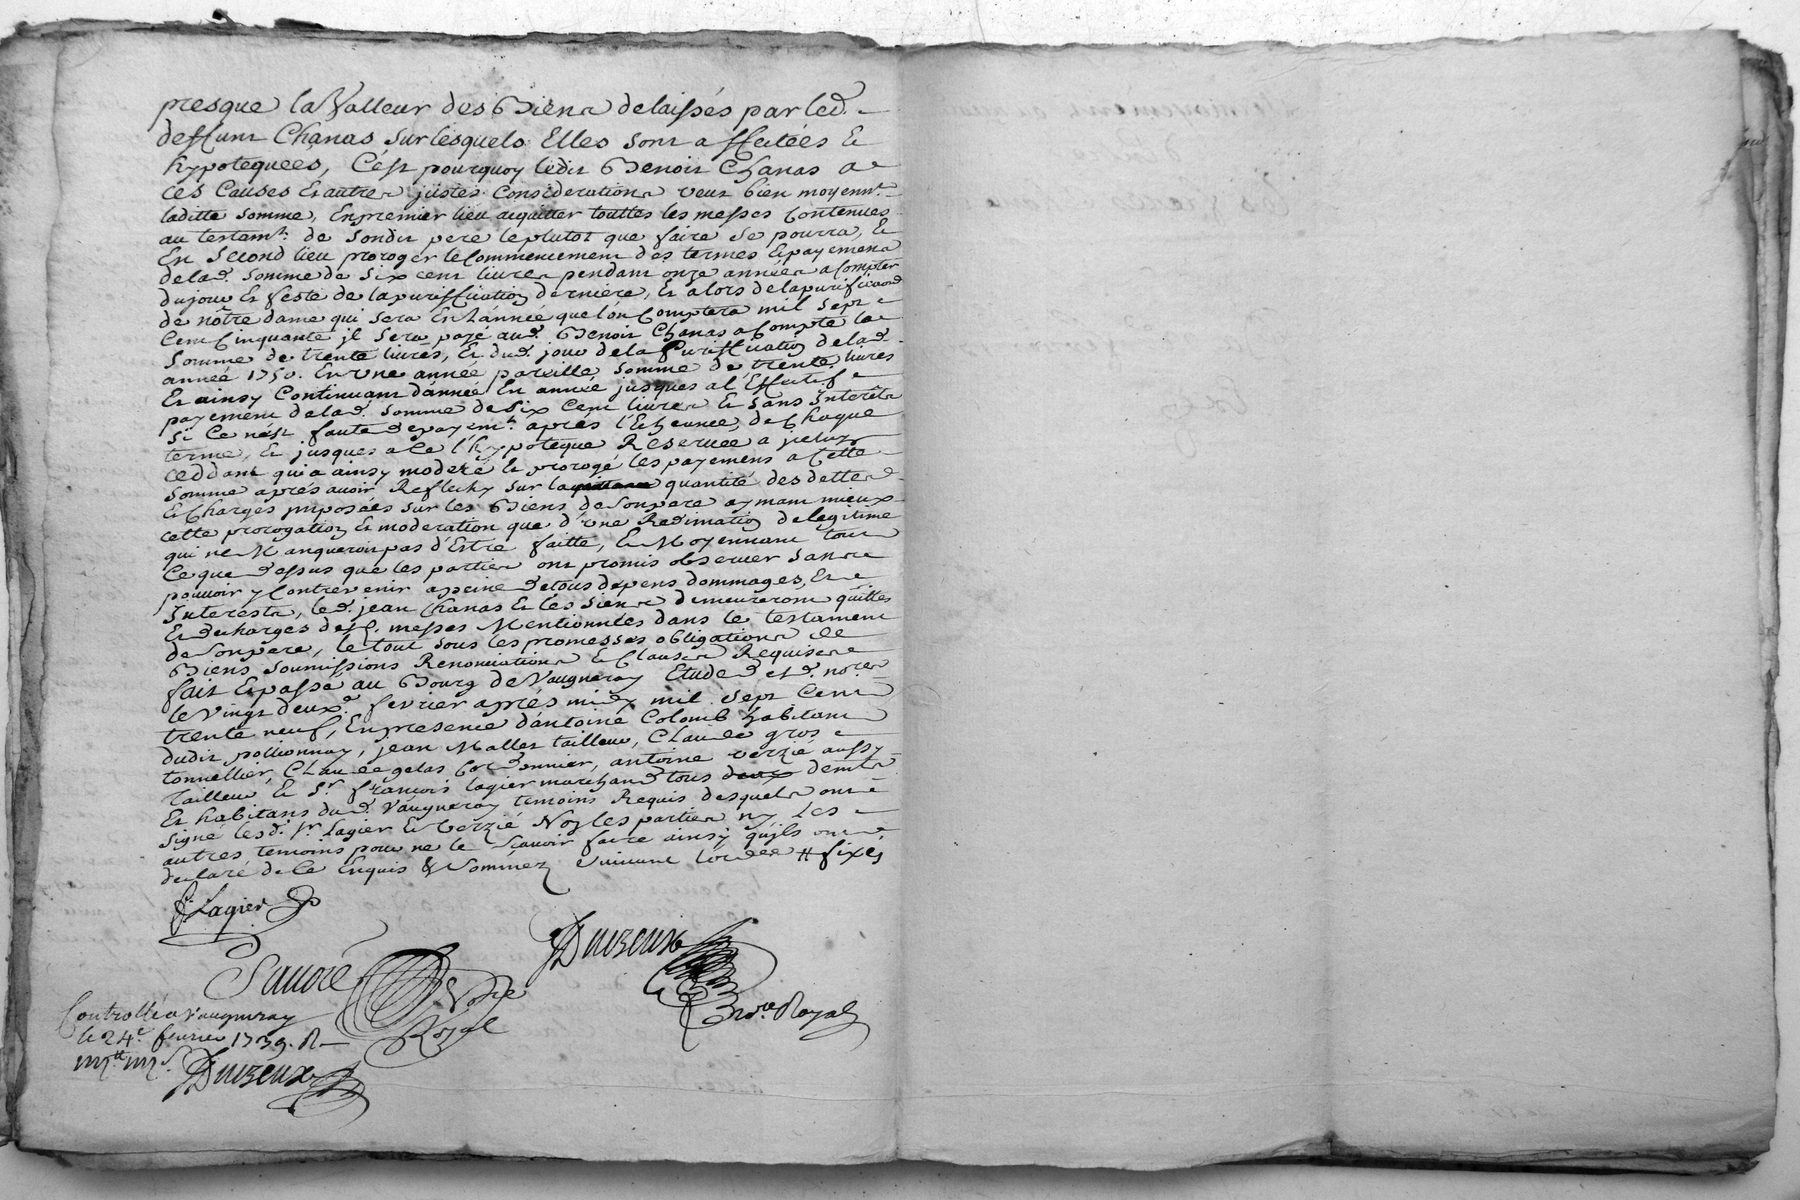 presque la Valleur des Biens delaissés par led.
deffunt Chanas sur lesquels Elles sont affectées Et
hypotequées, C'est pourquoy ledit Benoit Chanas a
ces Causes Et autres justes Considerations veut bien moyennt.
laditte somme, En premier lieu acquitter touttes les messes Contenues
au testamt. de Sondit pere le plutot que faire se pourra, Et
En Second lieu proroger le Commencement des termes Et payemens
de lad. somme de Six cent livres pendant onze années a Compter
du jour Et feste de la purification derniere, Et alors de la purification
de nôtre dame qui sera En L'année que l'on Comptera mil sept
Cent Cinquante jl sera payé aud. Benoit Chanas a Compte la
Somme de trente livres, Et dud. jour de la Purification de lad.
année 1750. En une année pareille somme de trente livres
Et ainsy Continuant d'année En année jusques al'Effectif
payement de lad. somme de Six Cent livres Et sans Interêts
Si Ce n'ést faute de payemt. aprés l'Echeance de Chaque
terme, Et jusques a ce l'hypoteque Reservée a jceluy
Ceddant qui a ainsy moderé Et prorogé les payemens a Cette
Somme aprés avoir Reflechy sur la quantité des dettes
Et Charges jmposées sur les Biens de Son pere aymant mieux
cette prorogation Et moderation que d'une Redimation de legitime
qui ne Manqueroit pas d'Estre faitte, Et Moyennant tout
Ce que dessus que les parties ont promis observer sans
pouvoir y Contrevenir a peine de tous depens dommages, Et
Interests, led. jean Chanas Et les Siens demeureront quittes
Et decharges desd. messes Mentionnées dans le testament
de Son pere, le tout sous les promesses obligations de
Biens Soumissions Renonciations Et Clauses Requises
fait Et passé au Bourg de Vaugneray Etude desd. nores
le Vingt deuxe. fevrier aprés midy mil sept Cent
trente neuf, En presence d'antoine Colomb habitant
dudit pollionnay, jean Mallet tailleur, Claude gros
tonnellier, Claude gelas Cordonnier, antoine verzié aussy
tailleur Et Sr. françois lagier marchand tous demts.
Et habitans dud. Vaugneray temoins Requis desquels ont
signé lesd. Sr. Lagier Et Verzié Non les parties ny Les
autres temoins pour ne le Sçavoir faire ainsy qu'ils ont
declaré de Ce Enquis & Sommez Suivant l'ordce # fixes
f. Lagier
Duizeux
Sauoré
Nore
Royal
nore. Royal
Controllé a Vaugneray
le 24e. fevrier 1739. R
Duizeux